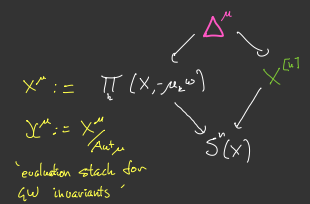 Δ^μ
X^μ := ∏_k (X, -μ_k ω) X^[n]
𝒳^μ := X^μ / Aut μ S^n(X)
'evaluation stack for
GW invariants'